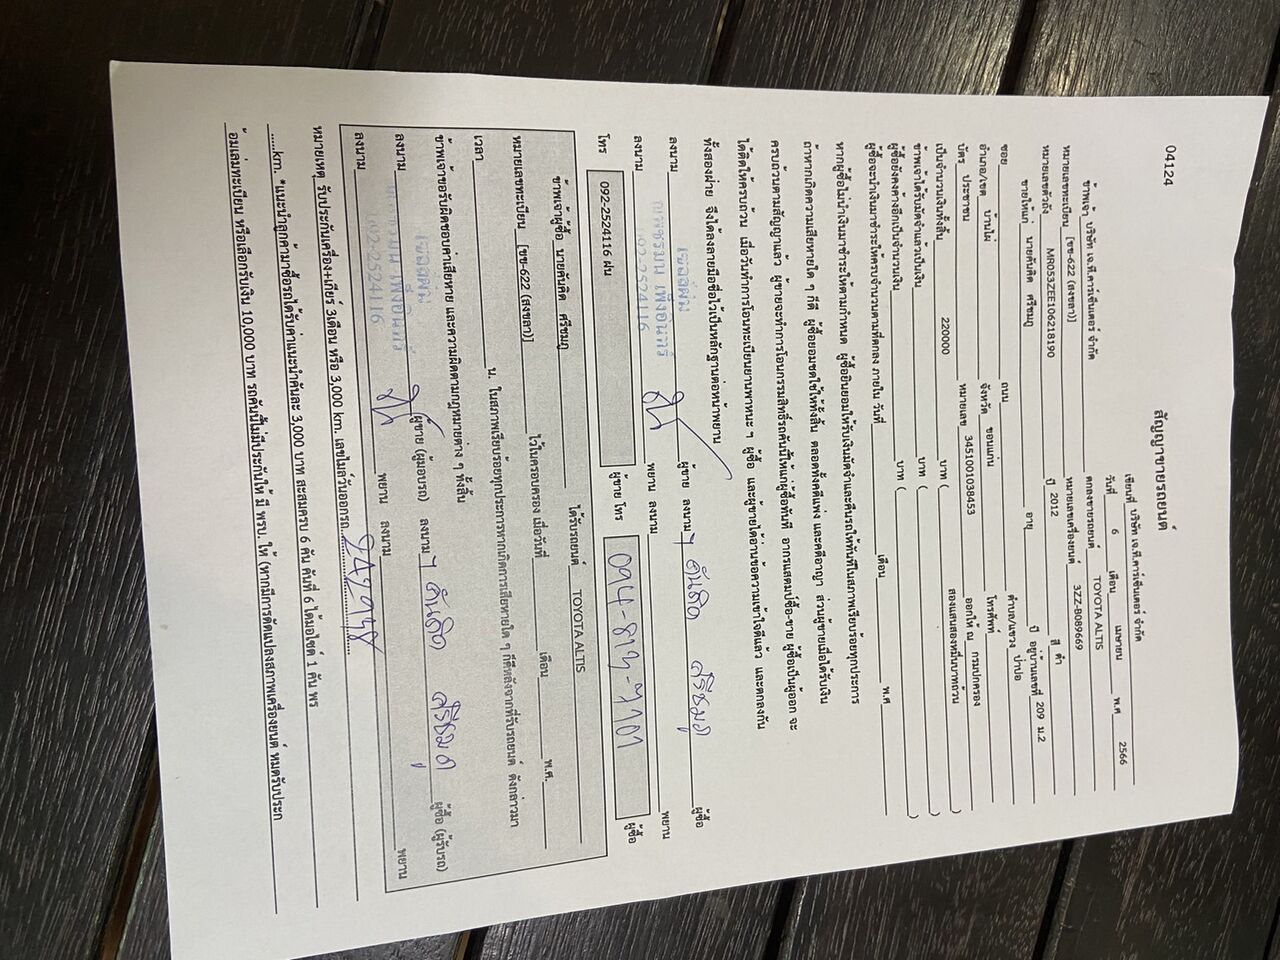 04124
สัญญาขายรถยนต์
เขียนที่ บริษัท เจ.ที.คาร์เซ็นเตอร์ จำกัด
วันที่ 6 เดือน เมษายน พ.ศ 2566
ข้าพเจ้า บริษัท เจ.ที.คาร์เซ็นเตอร์ จำกัด ตกลงขายรถยนต์ TOYOTA ALTIS
หมายเลขทะเบียน [ขข-622 (สงขลา)] หมายเลขเครื่องยนต์ 3ZZ-B089669
หมายเลขตัวถัง MR053ZEE106218190 ปี 2012 สี ดำ
ขายให้แก่ นายคันคิด ศรีชมภู อายุ ปี อยู่บ้านเลขที่ 209 ม.2
ซอย ถนน ตำบล/แขวง ป่าปอ
อำเภอ/เขต บ้านไผ่ จังหวัด ขอนแก่น โทรศัพท์
บัตร ประชาชน หมายเลข 3451001038453 ออกให้ ณ กรมปกครอง
เป็นจำนวนเงินทั้งสิ้น 220000 บาท ( สองแสนสองหมื่นบาทถ้วน )
ข้าพเจ้าได้รับมัดจำแล้วเป็นเงิน บาท ( )
ผู้ซื้อยังคงค้างอีกเป็นจำนวนเงิน บาท ( )
ผู้ซื้อจะนำเงินมาชำระให้ครบจำนวนตามที่ตกลง ภายใน วันที่ เดือน พ.ศ
หากผู้ซื้อไม่นำเงินมาชำระให้ตามกำหนด ผู้ซื้อยินยอมให้ริบเงินมัดจำและคืนรถให้ทันทีในสภาพเรียบร้อยทุกประการ
ถ้าหากเกิดความเสียหายใด ๆ ก็ดี ผู้ซื้อยอมชดใช้ให้ทั้งสิ้น ตลอดทั้งคดีแพ่ง และคดีอาญา ส่วนผู้ขายเมื่อได้รับเงิน
ครบถ้วนตามสัญญาแล้ว ผู้ขายจะทำการโอนกรรมสิทธิ์รถคันนี้ให้แก่ผู้ซื้อทันที อากรแสตมป์ซื้อ-ขาย ผู้ซื้อเป็นผู้ออก จะ
ได้ติดให้ครบถ้วน เมื่อวันทำการโอนทะเบียนยานพาหนะ ๆ ผู้ซื้อ และผู้ขายได้อ่านข้อความเข้าใจดีแล้ว และตกลงกัน
ทั้งสองฝ่าย จึงได้ลงลายมือชื่อไว้เป็นหลักฐานต่อหน้าพยาน
ลงนาม ผู้ขาย ลงนาม คันคิด ศรีชมภู ผู้ซื้อ
ลงนาม 092-2524116 พยาน ลงนาม พยาน
โทร 092-2524116 ฝน ผู้ขาย โทร ผู้ซื้อ
ข้าพเจ้าผู้ซื้อ นายคันคิด ศรีชมภู ได้รับรถยนต์ TOYOTA ALTIS
หมายเลขทะเบียน [ขข-622 (สงขลา)] ไว้ในครอบครอง เมื่อวันที่ เดือน พ.ศ.
เวลา น. ในสภาพเรียบร้อยทุกประการหากเกิดการเสียหายใด ๆ ก็ดีหลังจากที่รับรถยนต์ ดังกล่าวมา
ข้าพเจ้าขอรับผิดชอบค่าเสียหาย และความผิดตามกฎหมายต่าง ๆ ทั้งสิ้น
ลงนาม ผู้ขาย (ผู้มอบรถ) ลงนาม คันคิด ศรีชมภู ผู้ซื้อ (ผู้รับรถ)
ลงนาม 092-2524116 พยาน ลงนาม พยาน
หมายเหตุ รับประกันเครื่อง+เกียร์ 3เดือน หรือ 3,000 km. เลขไมล์วันออกรถ 242948
......km. *แนะนำลูกค้ามาซื้อรถได้รับค่าแนะนำคันละ 3,000 บาท สะสมครบ 6 คัน คันที่ 6 ได้มอไซด์ 1 คัน พร
้อมเล่มทะเบียน หรือเลือกรับเงิน 10,000 บาท รถคันนี้ไม่มีประกันให้ มี พรบ. ให้ (หากมีการดัดแปลงสภาพเครื่องยนต์ หมดรับประก